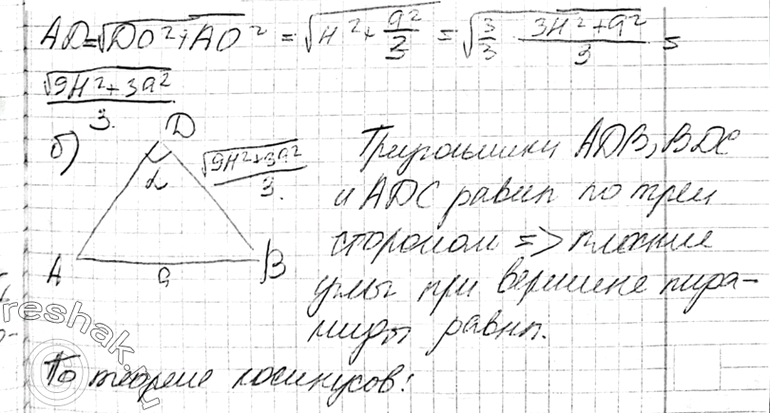 AD=√DO²+AO² = √H²+a²/3 = √3/3 · 3H²+a²/3 =
√9H²+3a²/3.
б)
D
α
√9H²+3a²/3.
A
a
B
Треугольники ADB, BDC
и ADC равны по трем
сторонам => плоские
углы при вершине пира-
миды равны.
По теореме косинусов:
reshak.ru